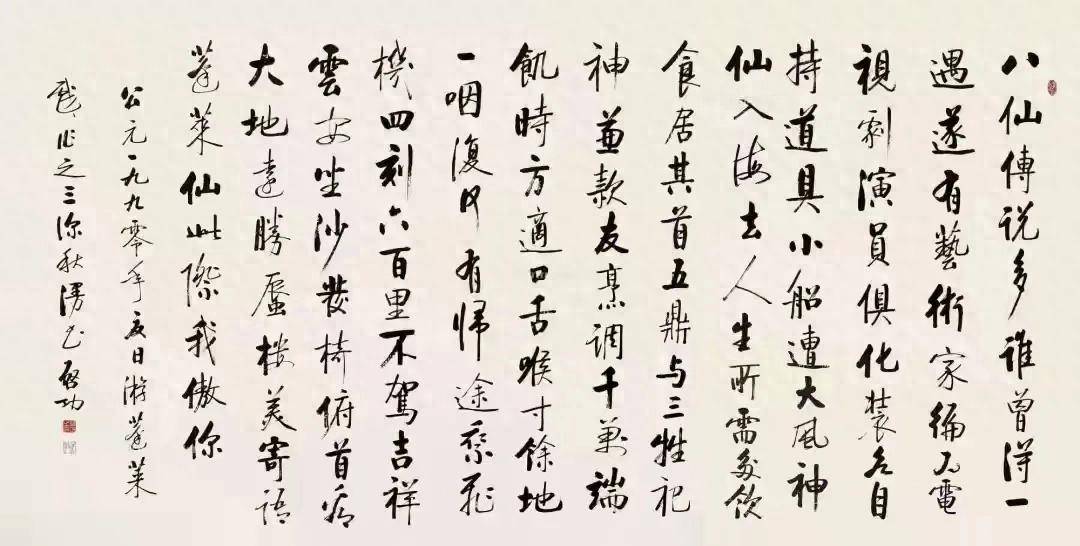 八仙傳说多誰曾得一
遇遂有藝術家編為電
視劇演員俱化裝各自
持道具小船遭大風神
仙入海去人生所需多飲
食居其首五鼎与三牲祀
神兼款友烹調千萬端
飢時方適口舌喉寸餘地
一咽復何有歸途乘飛
機四刻六百里不駕吉祥
雲安坐沙發椅俯首看
大地遠勝蜃樓美寄語
蓬萊仙此際我傲你
公元一九九零年夏日游蓬萊
戲作之三深秋漫書 啓功